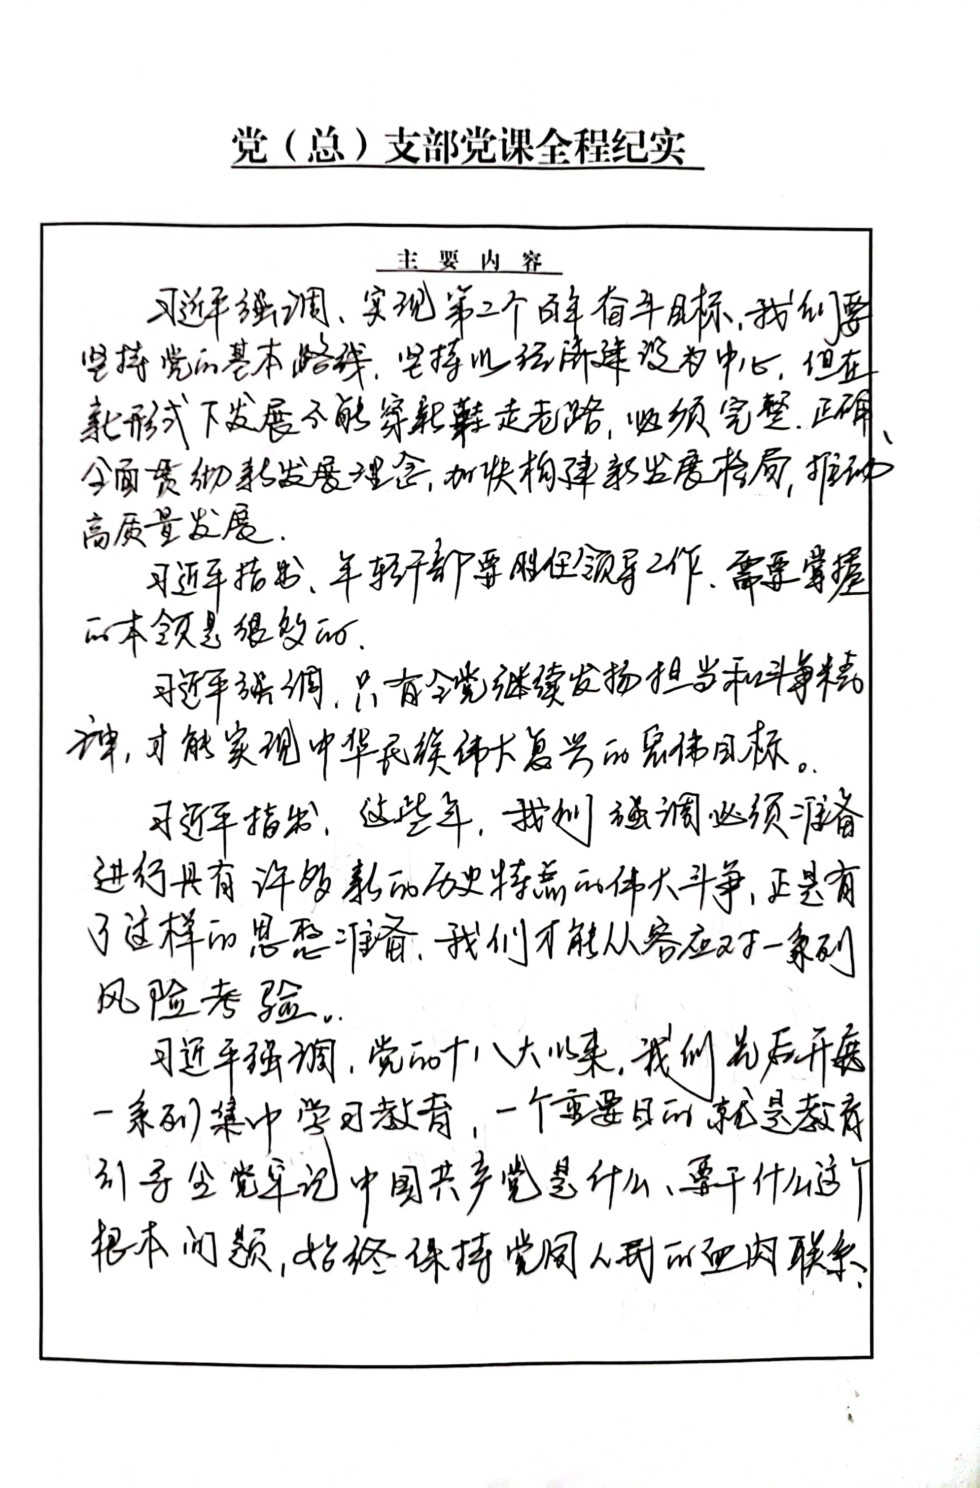 党（总）支部党课全程纪实
主要内容
习近平强调、实现第二个百年奋斗目标，我们要
坚持党的基本路线，坚持以经济建设为中心，但在
新形式下发展不能穿新鞋走老路，必须完整、正确、
全面贯彻新发展理念，加快构建新发展格局，推动
高质量发展.
习近平指出、年轻干部要胜任领导工作、需要掌握
的本领是很多的.
习近平强调，只有全党继续发扬担当和斗争精
神，才能实现中华民族伟大复兴的宏伟目标。
习近平指出，这些年，我们强调必须准备
进行具有许多新的历史特点的伟大斗争，正是有
了这样的思想准备，我们才能从容应对一系列
风险考验。
习近平强调，党的十八大以来，我们先后开展
一系列集中学习教育，一个重要目的就是教育
引导全党牢记中国共产党是什么、要干什么这个
根本问题，始终保持党同人民的血肉联系、